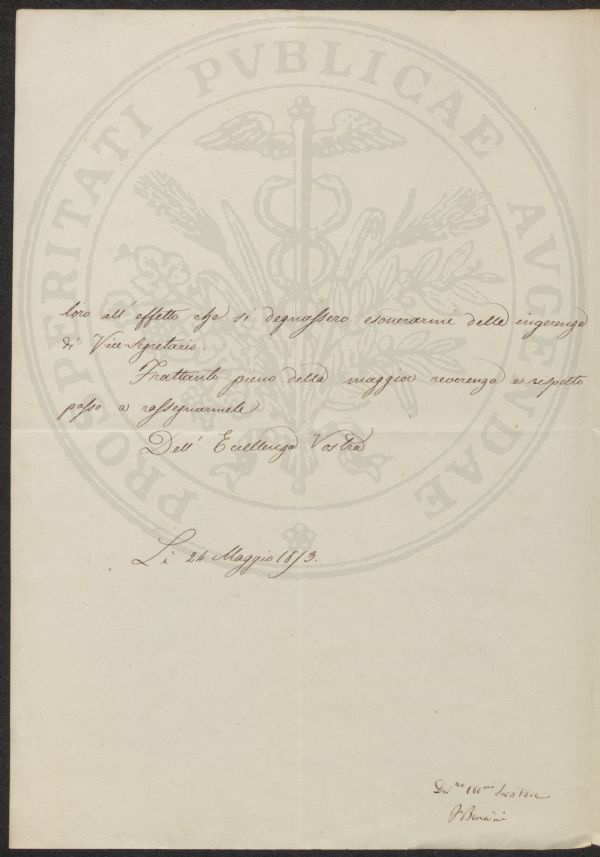 PROSPERITATI PVBLICAE AVGENDAE
loro all' effetto che si degnassero esonerarmi delle ingerenze
di Vice-Segretario.
Frattanto pieno della maggior reverenza e rispetto
passo a rassegnarmele
Dell' Eccellenza Vostra
Lì 24 Maggio 1853.
Dev.mo Obb.mo Servitore